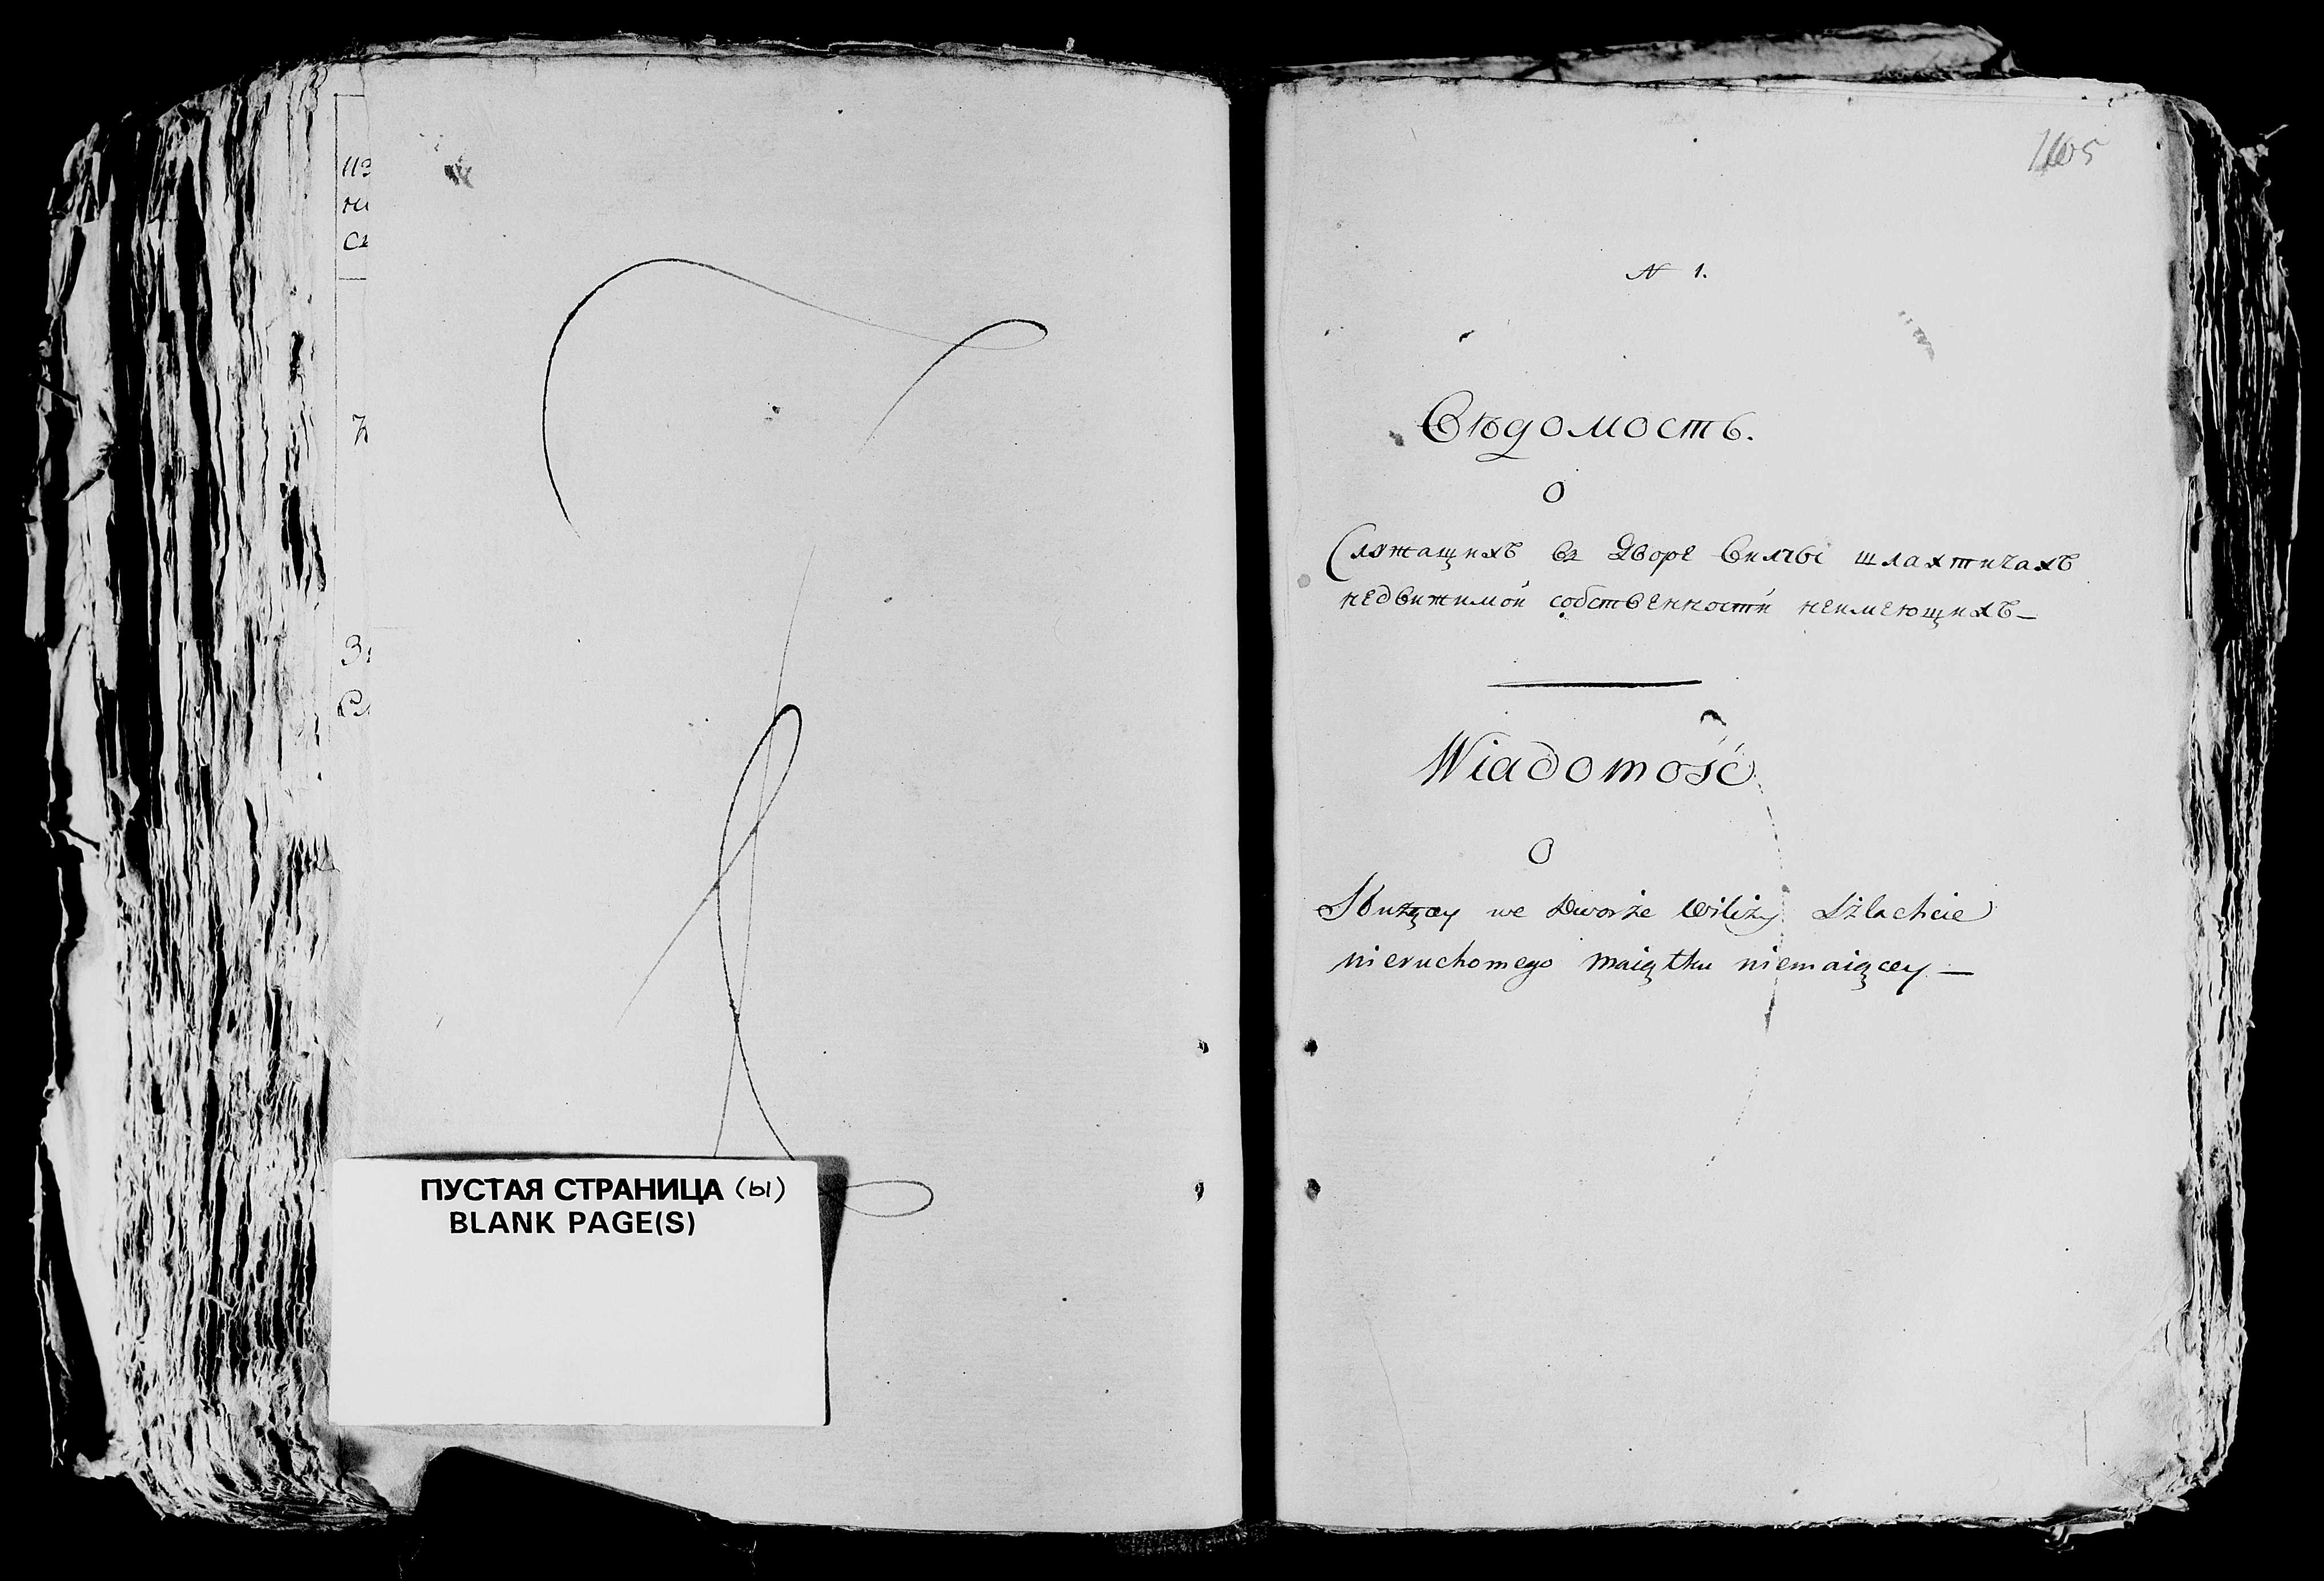 ПУСТАЯ СТРАНИЦА (Ы)
BLANK PAGE(S)
1105
N 1.
Вѣдомость.
О
Служащихъ въ Дворе шляхтичахъ
недвижимой собственности неимеющихъ—
Wiadomość
O
Służącey we Dworże Szlachcie
nieruchomego maiątku niemaiącey —